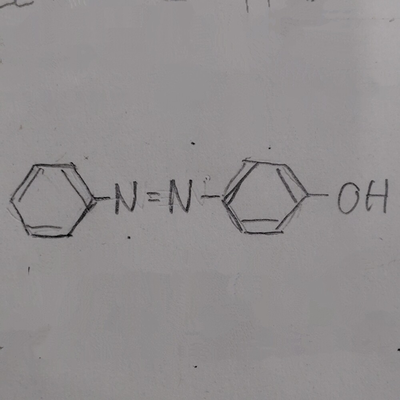 N=N OH